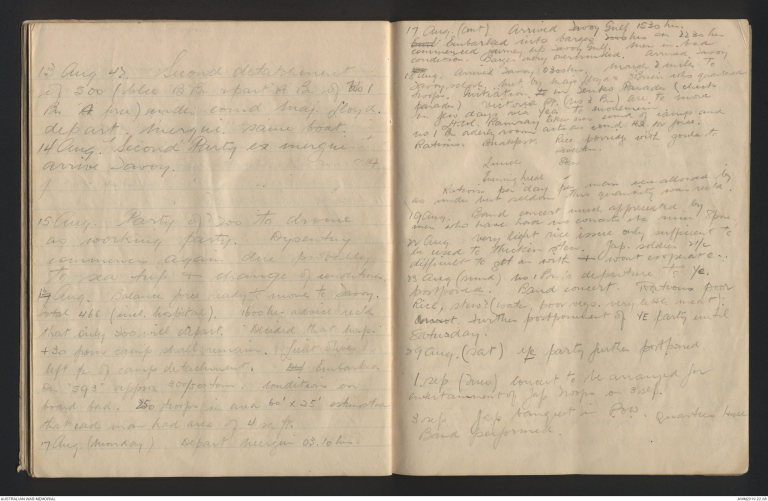 13 Aug 42. Second detachment
of 500 (
Bn A force) under comd Maj. Lloyd.
depart Mergui same boat.
14 Aug. Second Party ex Mergui
arrive Tavoy.
15 Aug. Party of 200 to drome
as working party. Dysentry
common again due probably
to sea trip & change of
Aug. Balance force ready to move to Tavoy.
total 466 (incl. hospital). 1600 hrs advice rec'd
that only 300 will depart. Decided that hosp.
+ 30 from camp shall remain. Lieut
left of camp detachment. Embarked
on "593" approx 30 tons. Conditions on
board bad. 250 troops in area 60' x 25' estimated
that each man had area of 4 sq ft.
17 Aug. (Monday) Depart Mergui 03.10 hrs.
17 Aug. (cont) Arrived Tavoy Gulf 1530 hrs.
Embarked into barges on 2230 hrs
commenced journey up Tavoy Gulf. Men in bad
condition. Barges very overcrowded. Arrived Tavoy
18 Aug. Arrived Tavoy 0300 hrs, march 3 miles to
Tavoy met by Major Green who
troops. Initiation in Tenko Parades (check
parades) Victoria Pt. (No 1 Bn) are to move
in few days via Ye to Moulmein.
Lt Col. Ramsay takes over comd of camp and
No 1 Bn orderly room acts as comd HQ A force.
Rations. Breakfast. Rice porridge with
Lunch
Evening Meal
Rations per day for men are allowed by
as under but seldom this quantity was rec'd.
19 Aug. Band concert much appreciated by
men who have had no concerts etc since S'pore
22 Aug. Very light rice issue only sufficient to
be used to thicken stew. Jap. soldier i/c
difficult to get on with & wont cooperate.
23 Aug (Sund) No 1 Bn's departure to Ye
postponed. Band concert. Rations poor
Rice, stew? (water, poor veg. very little meat).
Further postponement of YE party until
Saturday.
29 Aug. (Sat) Ye party further postponed
1 Sep (Tues) Concert to be arranged for
entertainment of Jap troops on 3 Sep.
3 Sep Jap banquet in P.O.W. quarters
Band performed.
AUSTRALIAN WAR MEMORIAL